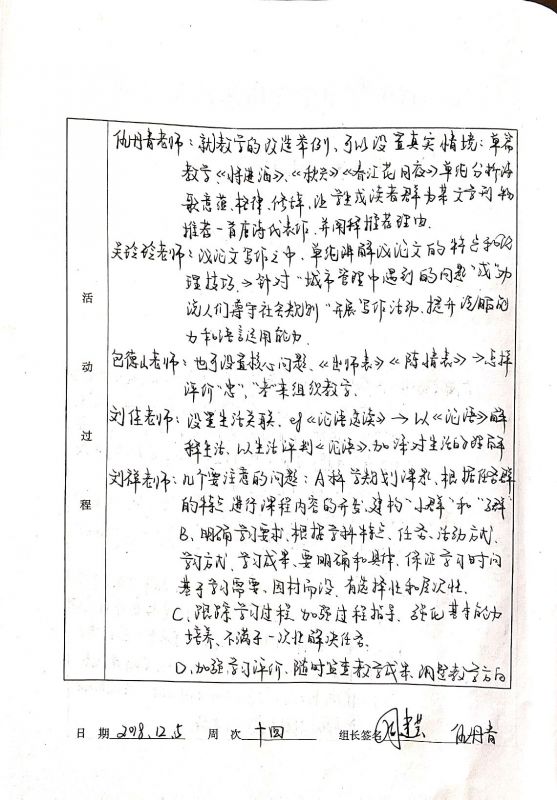 仇丹青老师:就教学的改造举例,可以设置真实情境:单篇
教学《将进酒》、《秋兴》《春江花月夜》单纯分析诗
歌意蕴、格律、修辞,让学生成读者群为某文学刊物
推荐一首唐诗代表作,并阐释推荐理由。
吴玲玲老师:议论文写作之中,单纯讲解议论文的特点和
理技巧。→针对“城市管理中遇到的问题”或“劝
说人们遵守社会规则”开展写作活动,提升说服能
力和语言运用能力
包德山老师:也可设置核心问题、《出师表》《陈情表》→怎样
评价“忠”,“孝”来组织教学.
刘佳老师:设置生活关联. eg《论语选读》→以《论语》解
释生活,以生活评判《论语》,加深对生活的理解
刘祥老师:几个要注意的问题:A科学规划课题、根据任务群
的特点进行课程内容的开发,建构“小群”和
B、明确学习要求,根据学科特点、任务、活动方式、
学习方式、学习成果、要明确和具体,保证学习时间
基于学习需要、因材而设、有选择性和层次性.
C、跟踪学习过程,加强过程指导,强化基本能力
培养、不满于一次性解决任务.
D、加强学习评价,随时监查教学成果,调整教学方向
活动过程
日期 2018.12.5 周次 十四 组长签名 仇丹青